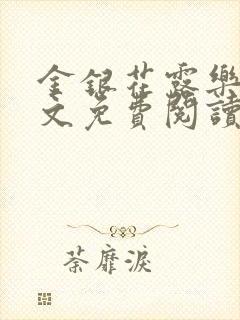 金銀花露樂
文免費閱讀
荼靡淚